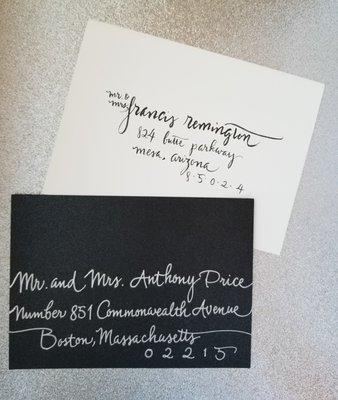 mr. &
mrs. francis remington
824 butte parkway
mesa, arizona
8·5·0·2·4
Mr. and Mrs. Anthony Price
Number 851 Commonwealth Avenue
Boston, Massachusetts
0 2 2 1 5